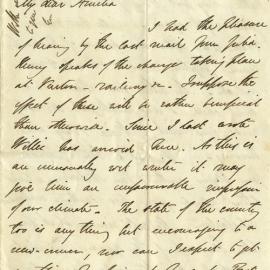 My dear Amelia
I had the pleasure
of hearing by the last mail from Julia.
Henry speaks of the change taking place
at railway &c. I suppose the
effect of these will be rather beneficial
than otherwise. Since I last wrote
Willie has arrived here. As this is
an unusually wet winter it may
give him an unfavourable impression
of our climate. The state of the country
too is any thing but encouraging to a
new-comer, nor can I expect to get